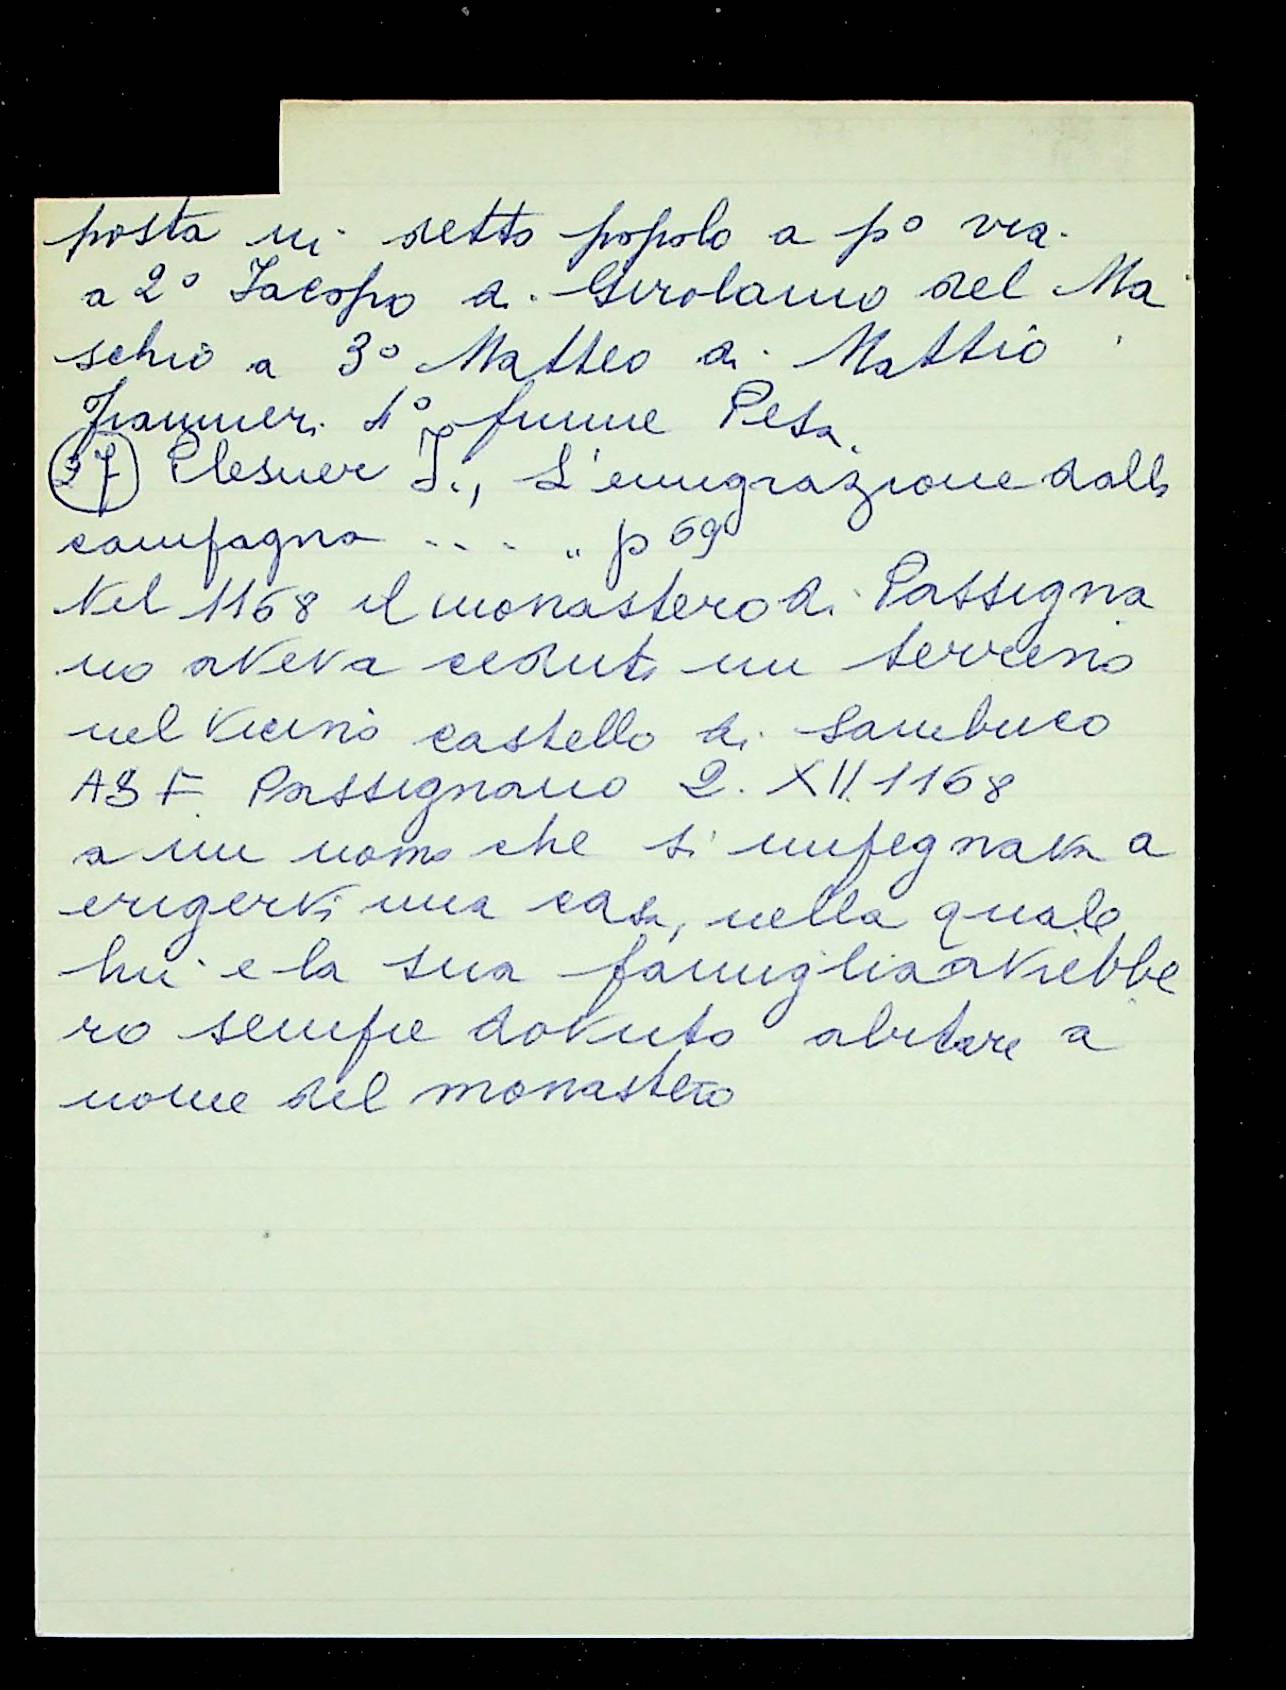 posta in detto popolo a p° via
a 2° Iacopo di Girolamo del Ma
schio a 3° Matteo di Mattio
4° fiume Pesa
Plesner J., L'emigrazione dalla
campagna .... p 69
Nel 1168 il monastero di Passigna
no aveva ceduto un terreno
nel vicino castello di Sambuco
ASF Passignano 2. XII. 1168
a un uomo che si impegnava a
erigervi una casa, nella quale
lui e la sua famiglia avrebbe
ro sempre dovuto abitare a
nome del monastero